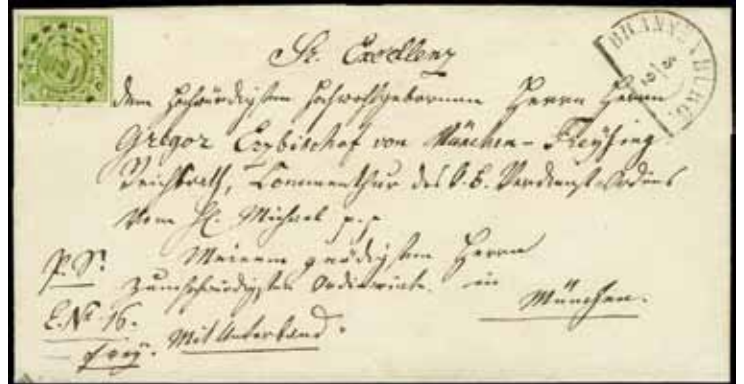 BRANNENBURG
5/2
Sr. Excellenz
dem Hochwürdigsten Hochwohlgebornen Herrn Herrn
Gregor Erzbischof von München-Freysing
Reichsrath, Commenthur des V.B. Verdienst-Ordens
vom Hl. Michael p.p
P.S. Meinem gnädigsten Herrn
in
München.
E.Nr. 16.
Mit Unterband.